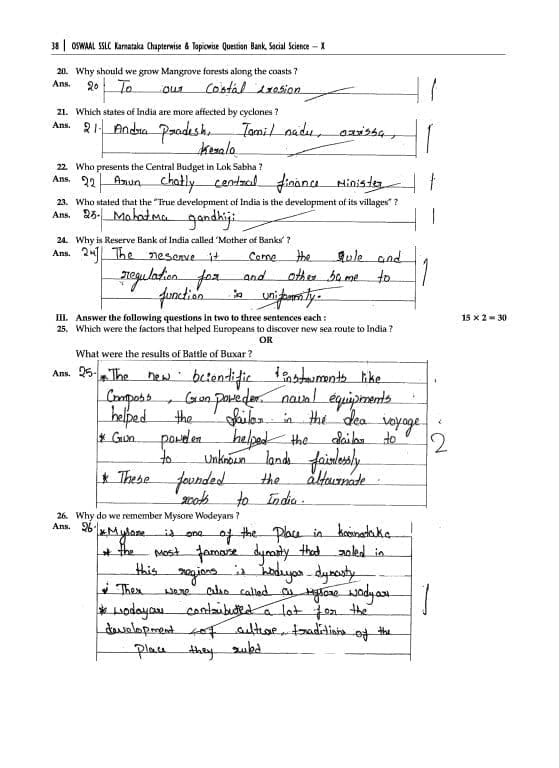 38 | OSWAAL SSLC Karnataka Chapterwise & Topicwise Question Bank, Social Science – X
20. Why should we grow Mangrove forests along the coasts ?
Ans. 20 To our Costal erosion 1
21. Which states of India are more affected by cyclones ?
Ans. 21. Andra Pradesh, Tamil nadu, orissa, 1
Kerala
22. Who presents the Central Budget in Lok Sabha ?
Ans. 22 Arun central finance Minister 1
23. Who stated that the "True development of India is the development of its villages" ?
Ans. 23. Mahatma gandhiji 1
24. Why is Reserve Bank of India called 'Mother of Banks' ?
Ans. 24 The reserve it Come the Rule and
regulation for and other to 1
function is uniformity.
III. Answer the following questions in two to three sentences each : 15 x 2 = 30
25. Which were the factors that helped Europeans to discover new sea route to India ?
OR
What were the results of Battle of Buxar ?
Ans. 25. * The new Scientific instruments like
Compass, Gun powder, naval equipments
helped the Sailor in the Sea voyage
* Gun powder helped the Sailor to 2
to Unknown lands
* These founded the
roots to India.
26. Why do we remember Mysore Wodeyars ?
Ans. 26 * Mysore is one of the Place in
* The most dynasty that ruled in
this regions is Wodeyar dynasty
were also called as Mysore Wodyar
* Wodeyar contributed a lot for the 1
development of culture, traditions of the
Place they